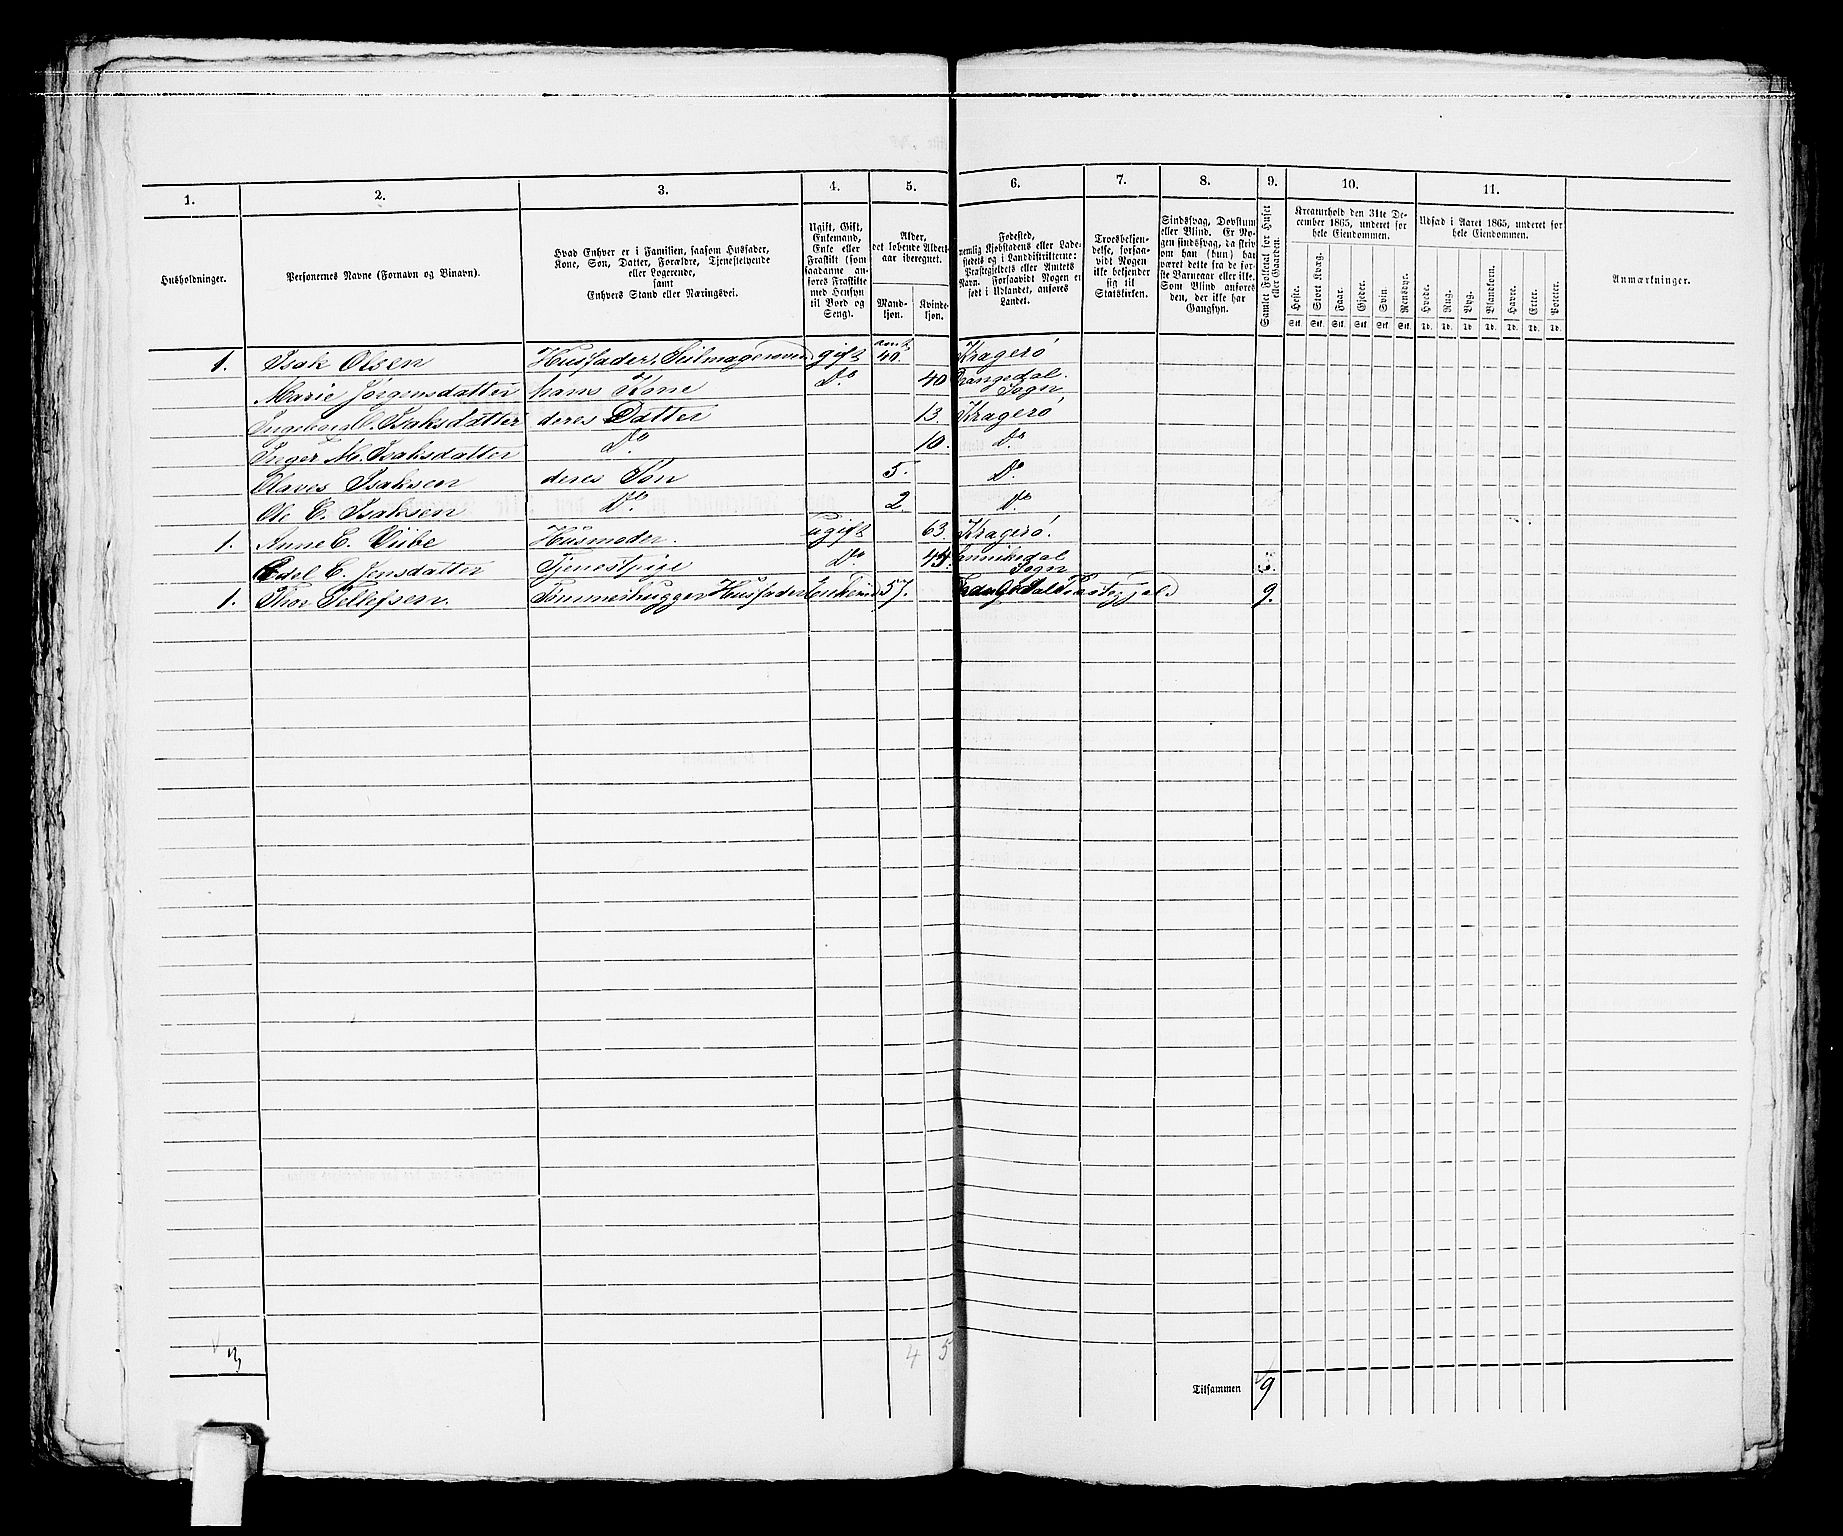 1. 2. 3. 4. 5. 6. 7. 8. 9. 10. 11.
Husholdninger.
Personernes Navne (Fornavn og Binavn).
Hvad Enhver er i Familien, saasom Husfader,
Kone, Søn, Datter, Forældre, Tjenestetyende
eller Logerende,
samt
Enhvers Stand eller Næringsvei.
Ugift, Gift,
Enkemand,
Enke eller
Fraskilt (som
saadanne an-
føres Fraskilte
med Hensyn
til Bord og
Seng).
Alder,
det løbende Alders-
aar iberegnet.
Mand-
kjøn.
Kvinde-
kjøn.
Fødested,
nemlig Kjøbstadens eller Lade-
stedets og i Landdistrikterne:
Præstegjeldets eller Amtets
Navn. Forsaavidt Nogen er
født i Udlandet, anføres
Landet.
Troesbekjen-
delse, forsaa-
vidt Nogen
ikke bekjender
sig til
Statskirken.
Sindssvag, Døvstum
eller Blind. Er No-
gen sindssvag, da skriv
om han (hun) har
været dette fra de før-
ste Barneaar eller ikke.
Som Blind anføres
den, der ikke har
Gangsyn.
Samlet Folketal for Huset
eller Gaarden.
Kreaturhold den 31te De-
cember 1865, underet for
hele Eiendommen.
Heste. Stort Kvæg. Faar. Gjeder. Svin. Rensdyr.
Stk. Stk. Stk. Stk. Stk. Stk.
Udsæd i Aaret 1865, underet for
hele Eiendommen.
Hvede. Rug. Byg. Blandkorn. Havre. Erter. Poteter.
Td. Td. Td. Td. Td. Td. Td.
Anmærkninger.
1. Isak Olsen Husfader, Seilmagersvend gift 40. Kragerø
Marie Jörgensdatter hans Kone Do 40 Drangedal Sogn
Isaksdatter deres Datter 13. Kragerø
Inger M. Isaksdatter Do. 10. Do.
Olaves Isaksen deres Søn 5. Do.
Ole C. Isaksen Do. 2 Do
1. Anne C. Viibe Husmoder. ugift 63. Kragerø.
Edel C. Jensdatter Tjenestpige Do. 45. Sannikedal Sogn
1. Thor Tellefsen. Tømmerhugger Husfader Enkemd 57. 9.
3 4 5
Tilsammen 9